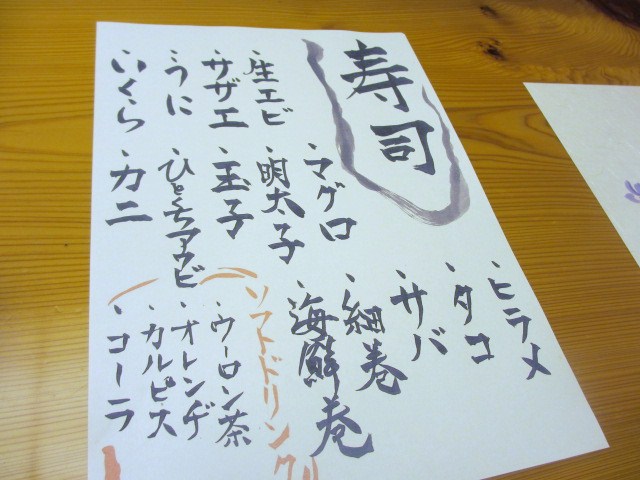 寿司
・ヒラメ
・タコ
・サバ
・細巻
・海鮮巻
・マグロ
・明太子
・玉子
・ひとくちアワビ
・カニ
・生エビ
・サザエ
・うに
・いくら
ソフトドリンク
・ウーロン茶
・オレンヂ
・カルピス
・コーラ